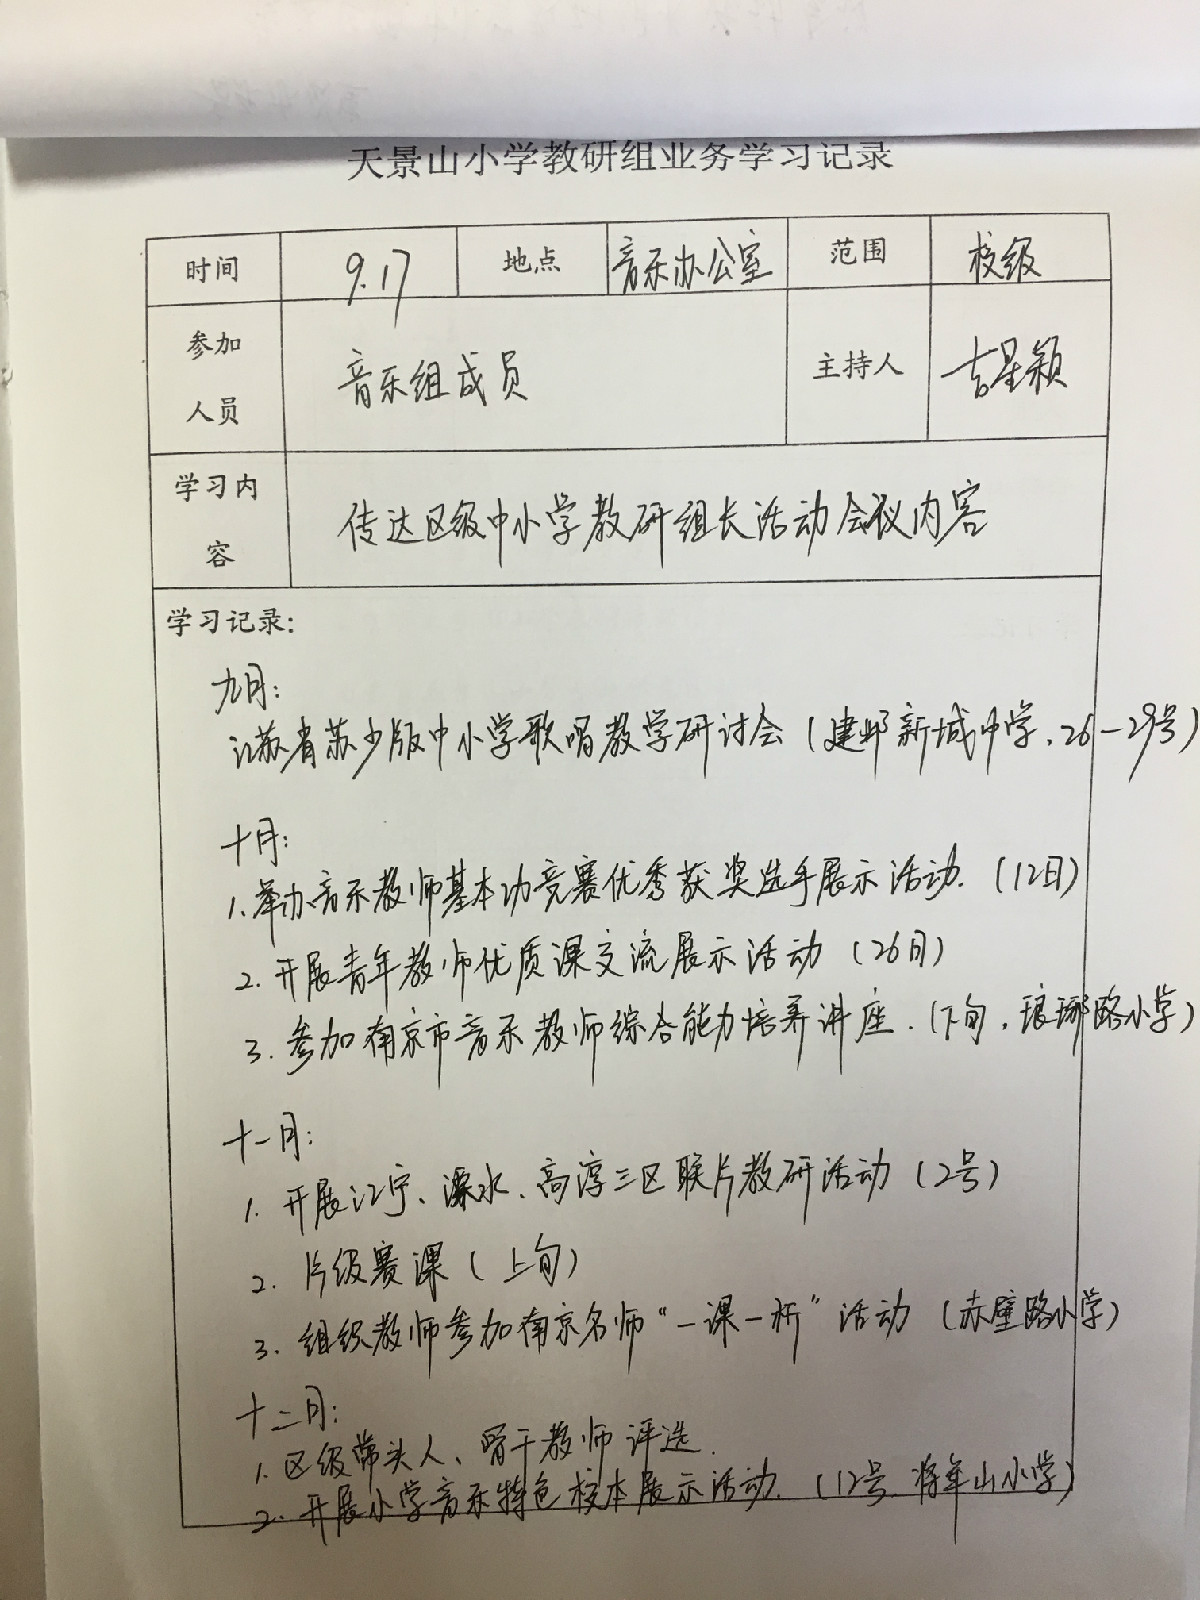 天景山小学教研组业务学习记录
时间 9.17 地点 音乐办公室 范围 校级
参加人员 音乐组成员 主持人 吉星颖
学习内容 传达区级中小学教研组长活动会议内容
学习记录:
九月:
江苏省苏少版中小学歌唱教学研讨会(建邺新城中学.26-29号)
十月:
1.举办音乐教师基本功竞赛优秀获奖选手展示活动.(12日)
2.开展青年教师优质课交流展示活动(26日)
3.参加南京市音乐教师综合能力培养讲座.(下旬.琅琊路小学)
十一月:
1.开展江宁、溧水、高淳三区联片教研活动(2号)
2.片级赛课(上旬)
3.组织教师参加南京名师“一课一析”活动(赤壁路小学)
十二月:
1.区级带头人、骨干教师评选.
2.开展小学音乐特色校本展示活动.(12号.将军山小学)